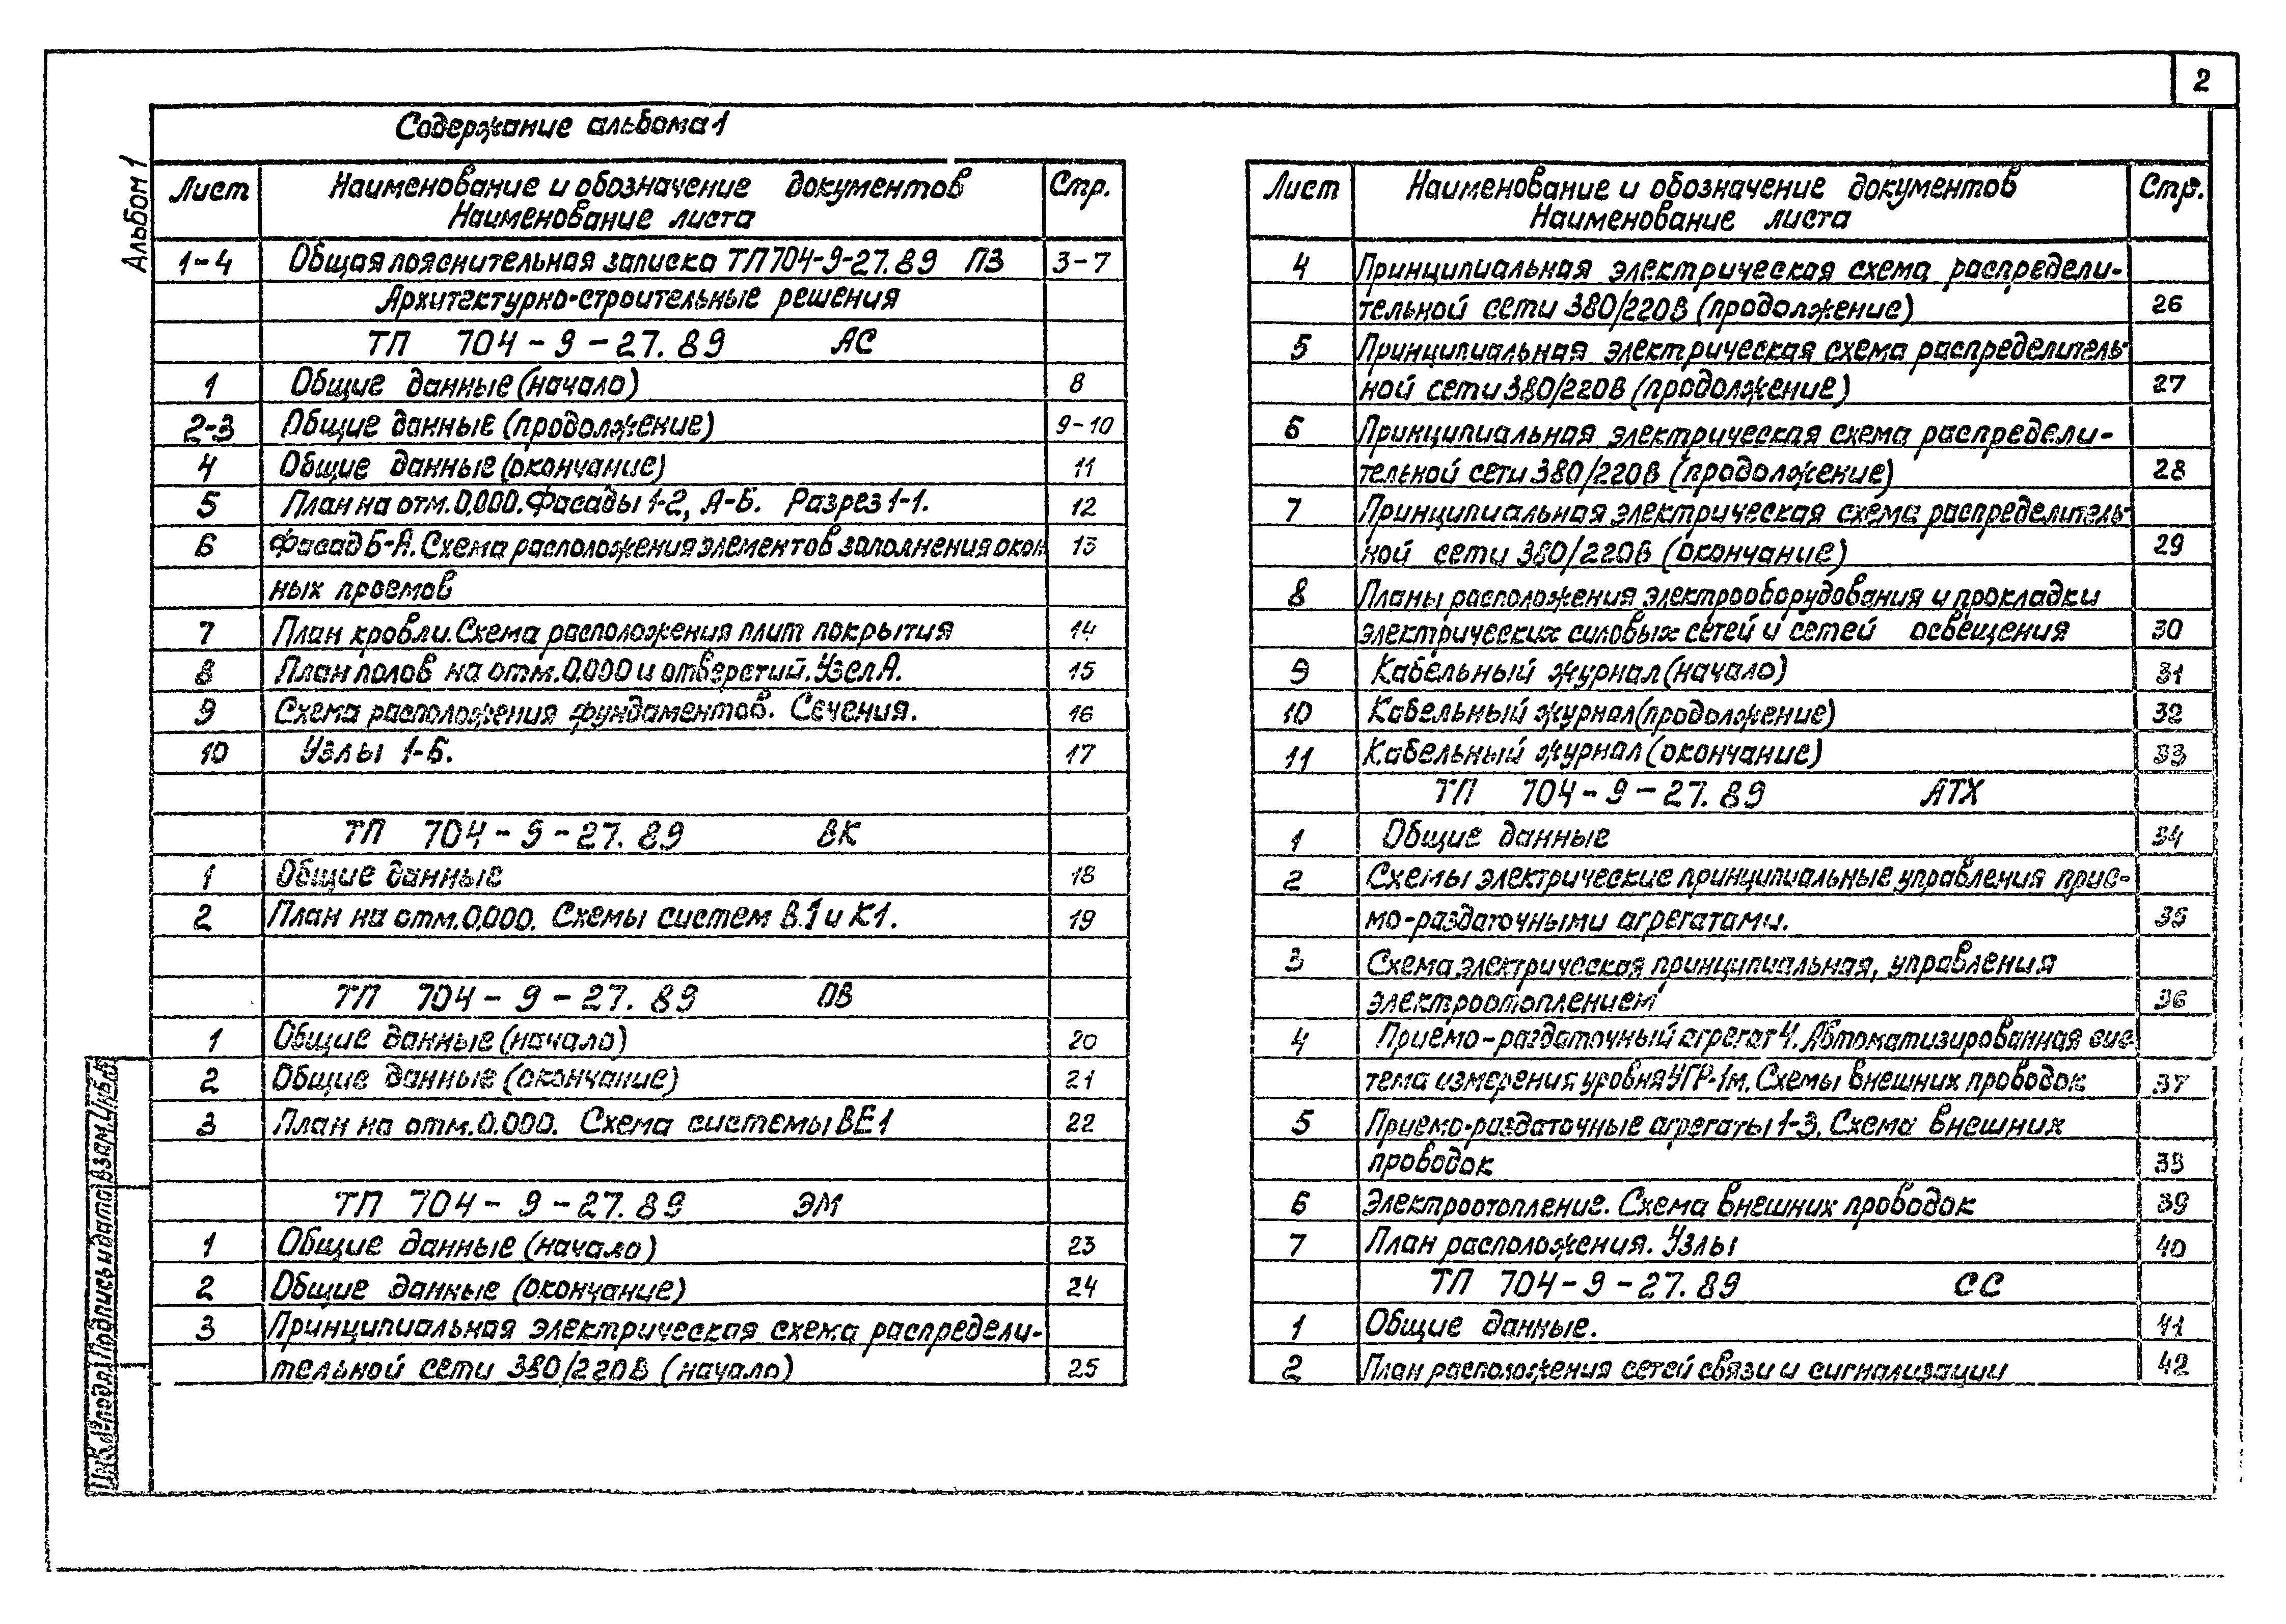 2
Содержание альбома 1
Альбом 1
Лист Наименование и обозначение документов Стр.
Наименование листа
1-4 Общая пояснительная записка ТП 704-9-27.89 ПЗ 3-7
Архитектурно-строительные решения
ТП 704-9-27.89 АС
1 Общие данные (начало) 8
2-3 Общие данные (продолжение) 9-10
4 Общие данные (окончание) 11
5 План на отм. 0,000. Фасады 1-2, А-Б. Разрез 1-1. 12
6 Фасад Б-А. Схема расположения элементов заполнения окон 13
ных проемов
7 План кровли. Схема расположения плит покрытия 14
8 План полов на отм. 0.000 и отверстий. Узел А. 15
9 Схема расположения фундаментов. Сечения. 16
10 Узлы 1-6. 17
ТП 704-9-27.89 ВК
1 Общие данные 18
2 План на отм. 0,000. Схемы систем В.1 и К1. 19
ТП 704-9-27.89 ОВ
1 Общие данные (начало) 20
2 Общие данные (окончание) 21
3 План на отм. 0.000. Схема системы ВЕ1 22
ТП 704-9-27.89 ЭМ
1 Общие данные (начало) 23
2 Общие данные (окончание) 24
3 Принципиальная электрическая схема распредели-
тельной сети 380/220В (начало) 25
Лист Наименование и обозначение документов Стр.
Наименование листа
4 Принципиальная электрическая схема распредели-
тельной сети 380/220В (продолжение) 26
5 Принципиальная электрическая схема распределитель-
ной сети 380/220В (продолжение) 27
6 Принципиальная электрическая схема распредели-
тельной сети 380/220В (продолжение) 28
7 Принципиальная электрическая схема распределитель-
ной сети 380/220В (окончание) 29
8 Планы расположения электрооборудования и прокладки
электрических силовых сетей и сетей освещения 30
9 Кабельный журнал (начало) 31
10 Кабельный журнал (продолжение) 32
11 Кабельный журнал (окончание) 33
ТП 704-9-27.89 АТХ
1 Общие данные 34
2 Схемы электрические принципиальные управления прие-
мо-раздаточными агрегатами. 35
3 Схема электрическая принципиальная, управления
электроотоплением 36
4 Приемо-раздаточный агрегат 4. Автоматизированная сис
тема измерения уровня УГР-1м. Схемы внешних проводок 37
5 Приемо-раздаточные агрегаты 1-3. Схема внешних
проводок 39
6 Электроотопление. Схема внешних проводок 39
7 План расположения. Узлы 40
ТП 704-9-27.89 СС
1 Общие данные. 41
2 План расположения сетей связи и сигнализации 42
Инв.№ подл. Подпись и дата Взам.инв.№